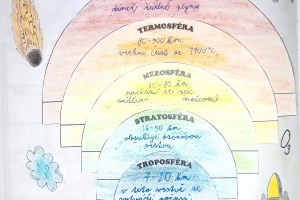 téměř žádné plyny
TERMOSFÉRA
80-500 km
vrchní část až 1700°C
MEZOSFÉRA
50-80 km
nachází se zde
většina meteorů
STRATOSFÉRA
16-50 km
obsahuje ozónovou
vrstvu
O3
TROPOSFÉRA
7-10 km
v této vrstvě se